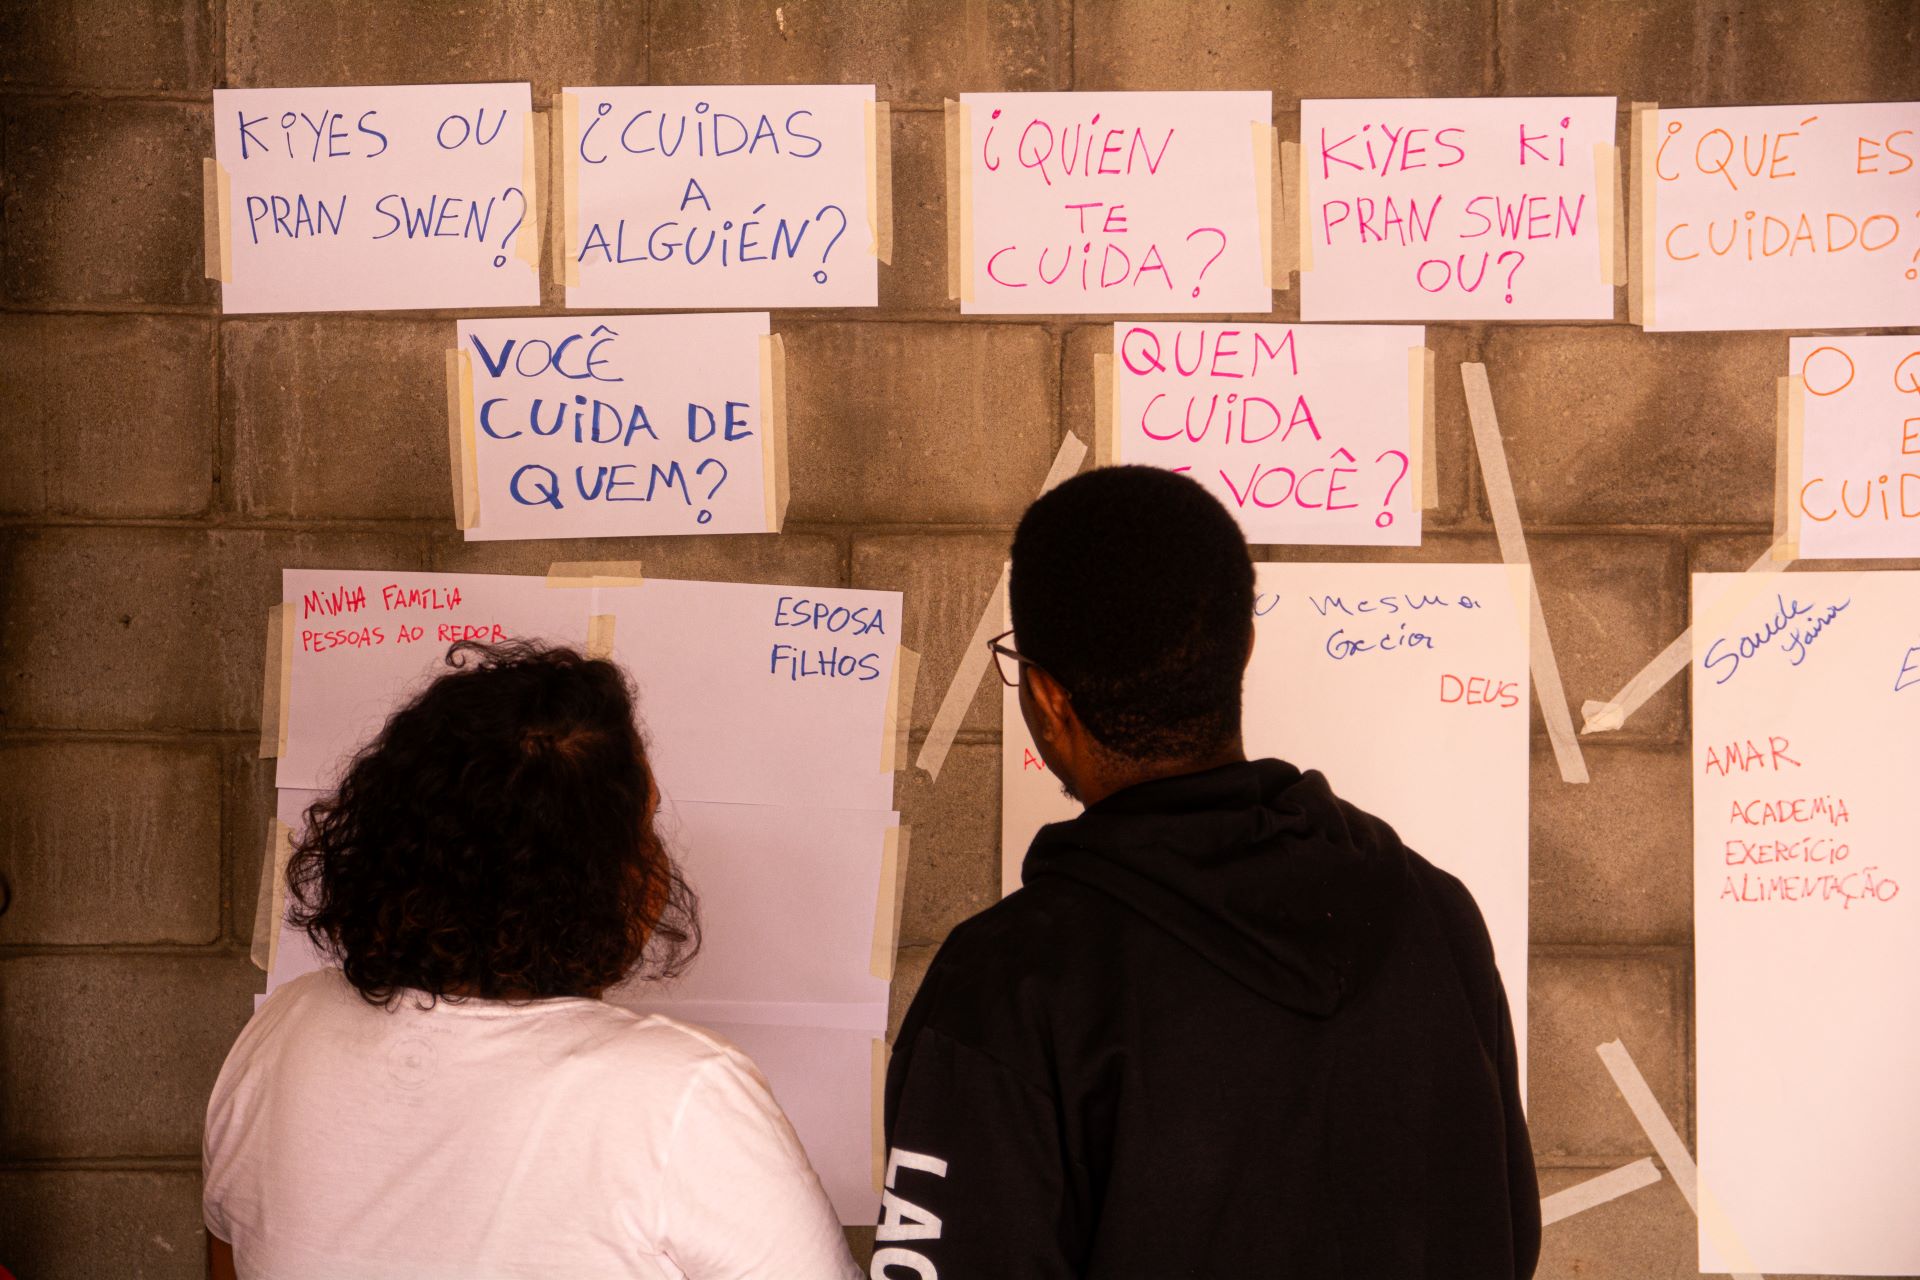 KiYES OU
PRAN SWEN?
¿CUiDAS
A
ALGUiÉN?
¿QUÍEN
TE
CUiDA?
KiYES Ki
PRAN SWEN
OU?
¿QUÉ ES
CUiDADO?
VOCÊ
CUiDA DE
QUEM?
QUEM
CUiDA
VOCÊ?
O
CUiD
MiNHA FAMÍLiA
PESSOAS AO REDOR
ESPOSA
FiLHOS
mesma
DEUS
Saude
AMAR
ACADEMiA
EXERCÍCiO
ALiMENTAÇÃO
LAC